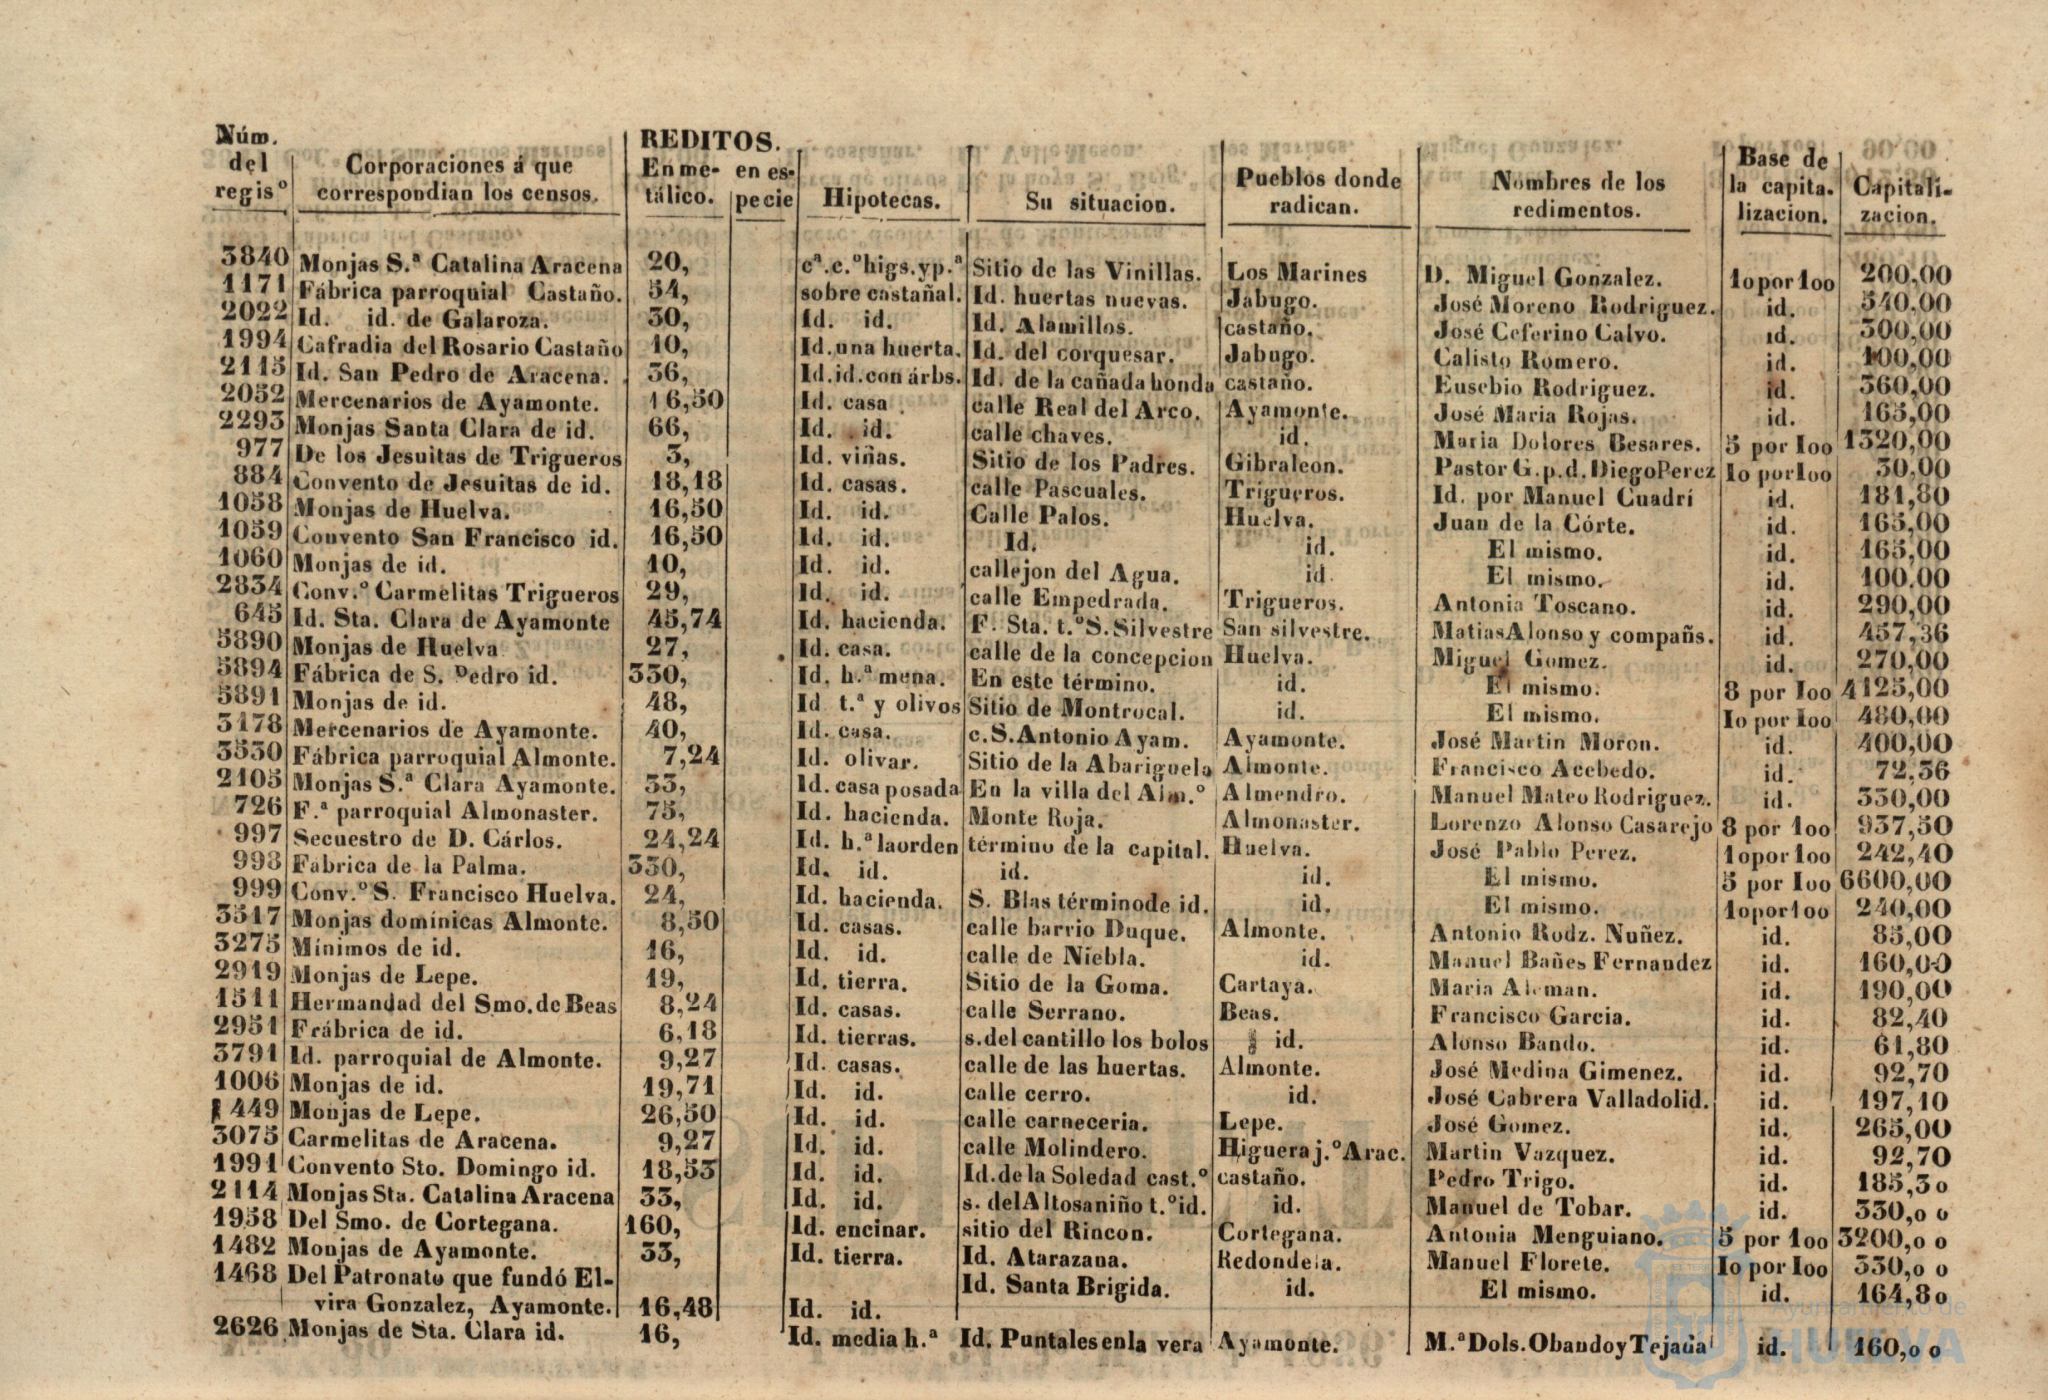 Núm. del regisº | Corporaciones á que correspondian los censos. | REDITOS. En metálico. | en especie | Hipotecas. | Su situacion. | Pueblos donde radican. | Nombres de los redimentos. | Base de la capitalizacion. | Capitalizacion.
3840 Monjas S.ª Catalina Aracena 20, cª.c.ºhigs.yp.ª Sitio de las Vinillas. Los Marines D. Miguel Gonzalez. 1o por 1oo 200,00
1171 Fábrica parroquial Castaño. 54, sobre castañal. Id. huertas nuevas. Jabugo. José Moreno Rodriguez. id. 540,00
2022 Id. id. de Galaroza. 30, Id. id. Id. Alamillos. castaño. José Ceferino Calvo. id. 300,00
1994 Cafradia del Rosario Castaño 10, Id. una huerta. Id. del corquesar. Jabugo. Calisto Romero. id. 100,00
2115 Id. San Pedro de Aracena. 36, Id.id.con árbs. Id. de la cañada honda castaño. Eusebio Rodriguez. id. 360,00
2052 Mercenarios de Ayamonte. 16,50 Id. casa calle Real del Arco. Ayamonte. José Maria Rojas. id. 165,00
2293 Monjas Santa Clara de id. 66, Id. id. calle chaves. id. Maria Dolores Besares. 5 por Ioo 1320,00
977 De los Jesuitas de Trigueros 3, Id. viñas. Sitio de los Padres. Gibraleon. Pastor G.p.d. Diego Perez Io por1oo 30,00
884 Convento de Jesuitas de id. 18,18 Id. casas. calle Pascuales. Trigueros. Id. por Manuel Cuadrí id. 181,80
1058 Monjas de Huelva. 16,50 Id. id. Calle Palos. Huelva. Juan de la Córte. id. 165,00
1059 Convento San Francisco id. 16,50 Id. id. Id. id. El mismo. id. 165,00
1060 Monjas de id. 10, Id. id. callejon del Agua. id. El mismo. id. 100.00
2834 Conv.º Carmelitas Trigueros 29, Id. id. calle Empedrada. Trigueros. Antonia Toscano. id. 290,00
645 Id. Sta. Clara de Ayamonte 45,74 Id. hacienda. F. Sta. t.ºS. Silvestre San silvestre. Matias Alonso y compañs. id. 457,36
5890 Monjas de Huelva 27, Id. casa. calle de la concepcion Huelva. Miguel Gomez. id. 270,00
5894 Fábrica de S. Pedro id. 330, Id. h.ª mena. En este término. id. El mismo. 8 por Ioo 4125,00
5891 Monjas de id. 48, Id t.ª y olivos Sitio de Montrocal. id. El mismo. Io por 1oo 480,00
3178 Mercenarios de Ayamonte. 40, Id. casa. c.S.Antonio Ayam. Ayamonte. José Martin Moron. id. 400,00
3530 Fábrica parroquial Almonte. 7,24 Id. olivar. Sitio de la Abariguela Almonte. Francisco Acebedo. id. 72,36
2105 Monjas S.ª Clara Ayamonte. 33, Id. casa posada En la villa del Alm.º Almendro. Manuel Mateo Rodriguez. id. 330,00
726 F.ª parroquial Almonaster. 75, Id. hacienda. Monte Roja. Almonaster. Lorenzo Alonso Casarejo 8 por 1oo 937,50
997 Secuestro de D. Cárlos. 24,24 Id. h.ª laorden término de la capital. Huelva. José Pablo Perez. 1opor1oo 242,40
998 Fábrica de la Palma. 330, Id. id. id. id. El mismo. 5 por Ioo 6600,00
999 Conv.º S. Francisco Huelva. 24, Id. hacienda. S. Blas términode id. id. El mismo. 1opor1oo 240,00
3517 Monjas domínicas Almonte. 8,50 Id. casas. calle barrio Duque. Almonte. Antonio Rodz. Nuñez. id. 85,00
3275 Mínimos de id. 16, Id. id. calle de Niebla. id. Manuel Bañes Fernandez id. 160,00
2919 Monjas de Lepe. 19, Id. tierra. Sitio de la Goma. Cartaya. Maria Aleman. id. 190,00
1511 Hermandad del Smo. de Beas 8,24 Id. casas. calle Serrano. Beas. Francisco Garcia. id. 82,40
2951 Frábrica de id. 6,18 Id. tierras. s. del cantillo los bolos id. Alonso Bando. id. 61,80
3791 Id. parroquial de Almonte. 9,27 Id. casas. calle de las huertas. Almonte. José Medina Gimenez. id. 92,70
1006 Monjas de id. 19,71 Id. id. calle cerro. id. José Cabrera Valladolid. id. 197,10
449 Monjas de Lepe. 26,50 Id. id. calle carneceria. Lepe. José Gomez. id. 265,00
3075 Carmelitas de Aracena. 9,27 Id. id. calle Molindero. Higuera j.º Arac. Martin Vazquez. id. 92,70
1991 Convento Sto. Domingo id. 18,53 Id. id. Id. de la Soledad cast.º castaño. Pedro Trigo. id. 185,3o
2114 Monjas Sta. Catalina Aracena 33, Id. id. s. del Altosaniño t.º id. id. Manuel de Tobar. id. 330,o o
1958 Del Smo. de Cortegana. 160, Id. encinar. sitio del Rincon. Cortegana. Antonia Menguiano. 5 por 1oo 3200,o o
1482 Monjas de Ayamonte. 33, Id. tierra. Id. Atarazana. Redondela. Manuel Florete. Io por Ioo 330,o o
1468 Del Patronato que fundó El-
vira Gonzalez, Ayamonte. 16,48 Id. id. Id. Santa Brigida. id. El mismo. id. 164,8o
2626 Monjas de Sta. Clara id. 16, Id. media h.ª Id. Puntales en la vera Ayamonte. M.ª Dols. Obando y Tejada id. 160,o o
Ayuntamiento de
HUELVA